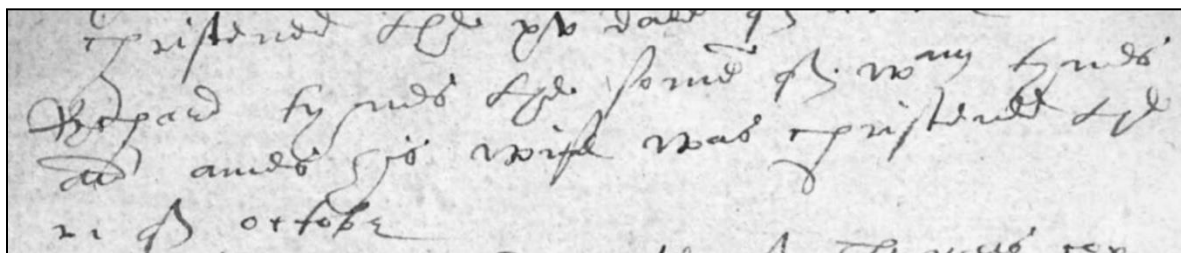 christened the xxv daie of
Rychard hynes the sonne of wm hynes
and annes his wife was christened the
xi of octobr